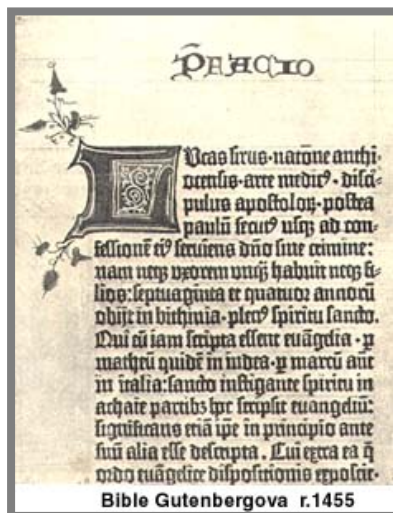 P̃FACIO
LVcas sirus·natōne anthi-
ocensis·arte medicꝰ·disci-
pulus apostoloꝝ·postea
paulū secutꝰ usqꝫ ad con-
fessionē eiꝰ serviens dn̄o sine crimine:
nam neqꝫ vxorem unqꝫ̄ habuit neqꝫ fi-
lios: septuaginta et quatuor annorū
obijt in bithinia·plenꝰ spiritu sancto.
Qui cū iam scripta essent euāgelia·ꝑ
matheū quidē in iudea·ꝑ marcū aūt
in italia: sancto instigante spiritu in
achaie partibꝫ hoc scripsit euangeliū:
significans etiā ip̄e in principio ante
suū alia esse descripta. Cui extra ea q̄
ordo euāgelice dispositionis exposcit·
Bible Gutenbergova r.1455